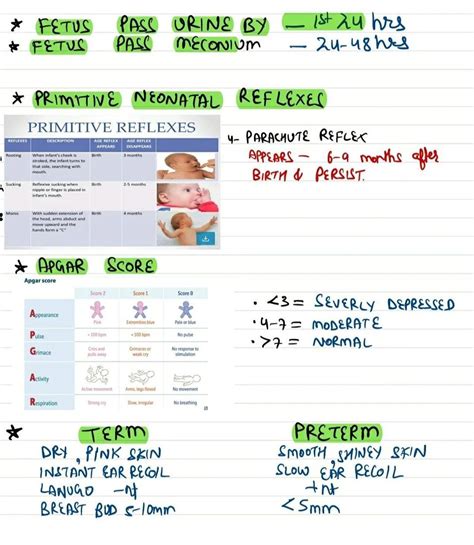 * FETUS PASS URINE BY - 1st 24 hrs
* FETUS PASS MECONIUM - 24-48 hrs
* PRIMITIVE NEONATAL REFLEXES
PRIMITIVE REFLEXES
REFLEXES DESCRIPTION AGE REFLEX APPEARS AGE REFLEX DISAPPEARS
Rooting When infant's cheek is stroked, the infant turns to that side, searching with mouth. Birth 3 months
Sucking Reflexive sucking when nipple or finger is placed in infant's mouth Birth 2-5 months
Moros With sudden extension of the head, arms abduct and move upward and the hands form a "C" Birth 4 months
4- PARACHUTE REFLEX
APPEARS - 6-9 months after
BIRTH & PERSIST.
* APGAR SCORE
Apgar score
Score 2 Score 1 Score 0
Appearance Pink Extremities blue Pale or blue
Pulse > 100 bpm < 100 bpm No pulse
Grimace Cries and pulls away Grimaces or weak cry No response to stimulation
Activity Active movement Arms, legs flexed No movement
Respiration Strong cry Slow, irregular No breathing
• <3 = SEVERLY DEPRESSED
• 4-7 = MODERATE
• >7 = NORMAL
* TERM PRETERM
DRY, PINK SKIN SMOOTH, SHINEY SKIN
INSTANT EAR RECOIL SLOW EAR RECOIL
LANUGO -nt +nt
BREAST BUD 5-10mm <5mm